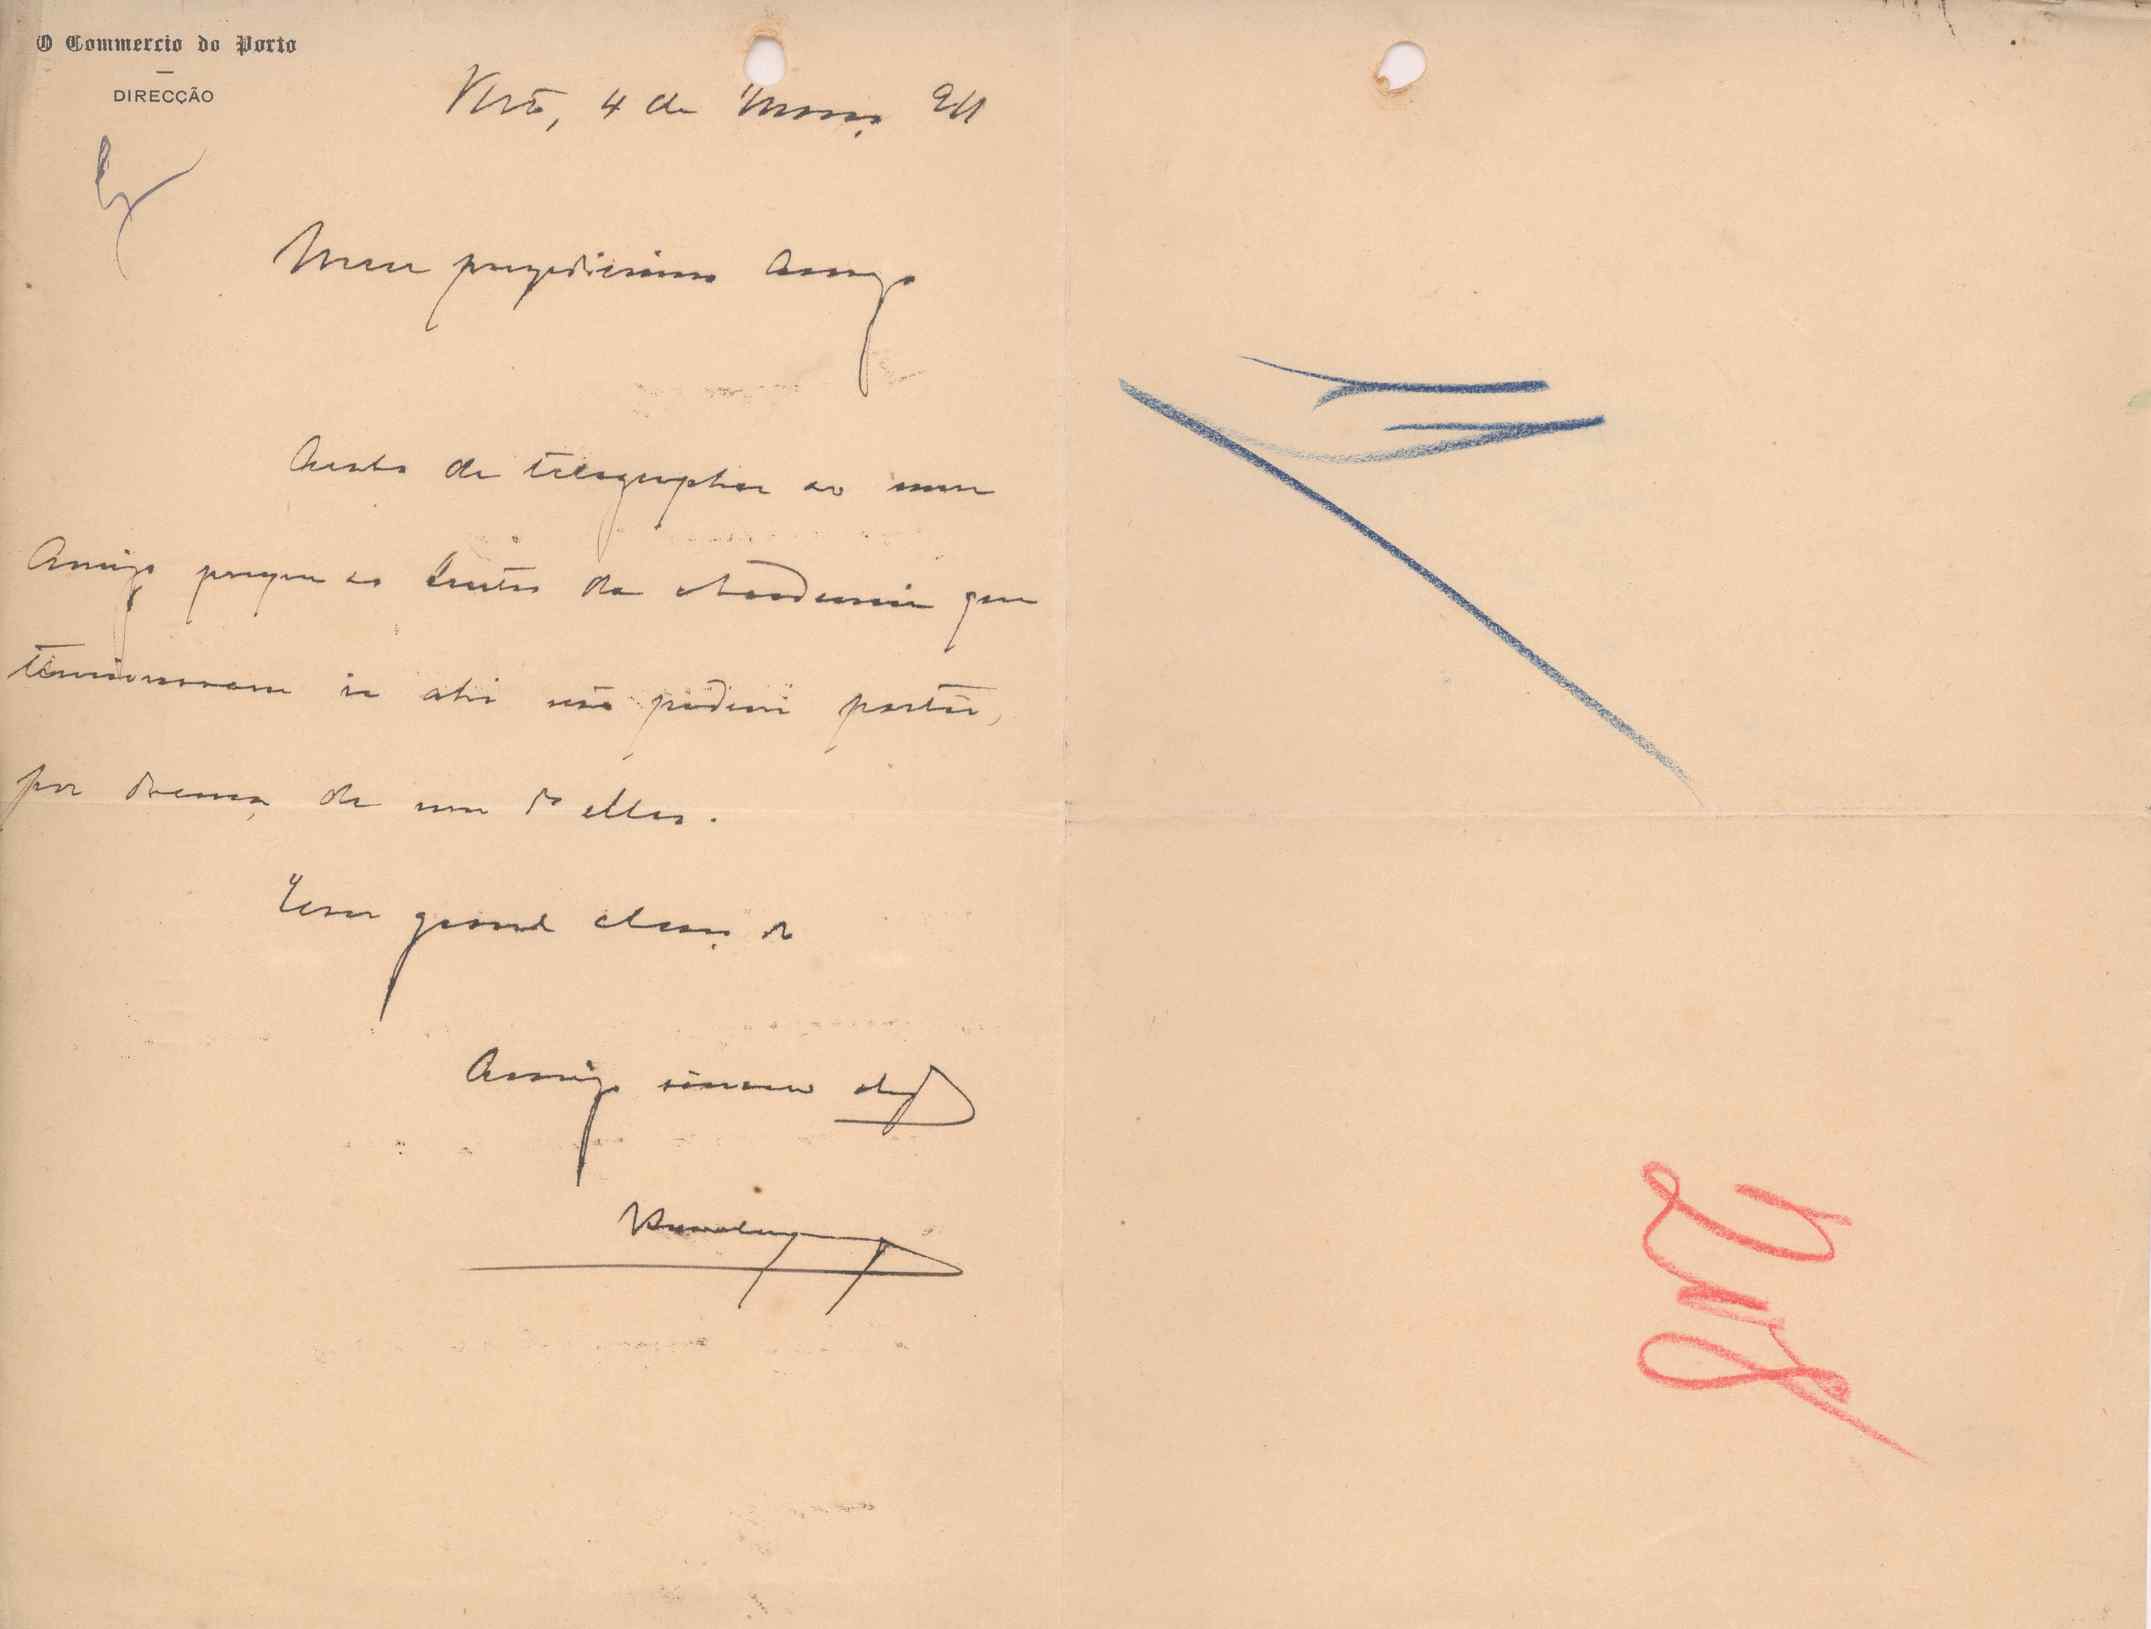 O Commercio do Porto
DIRECÇÃO
Porto, 4 de Março 911
Meu presadissimo Amigo
Acabo de telegraphar ao meu
Amigo porque os lentes da Academia que
tencionavam ir ahi não podem partir,
por doença de um d'elles.
Um grande abraço do
Amigo